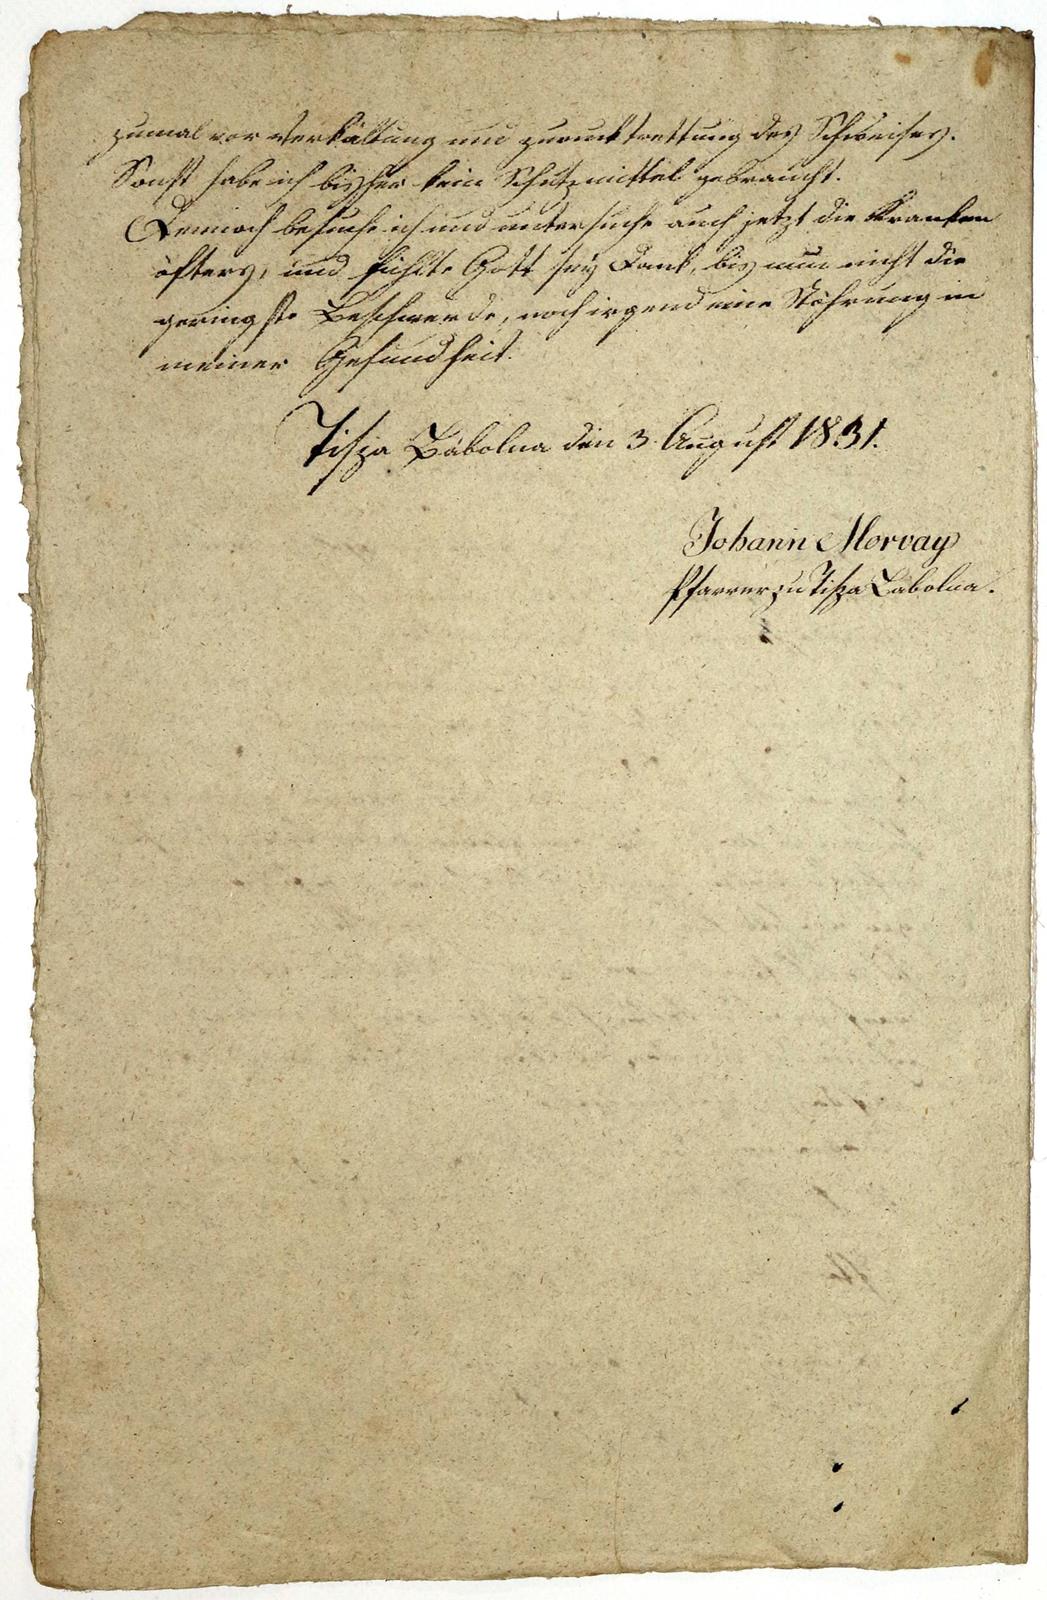 zumal vor Verkältung und zurücktrettung des Schweises.
Sonst habe ich bisher kein Schutzmittel gebraucht.
Dennoch besuche ich und untersuche auch jetzt die Kranken
öfters, und fühlte Gott sey Dank, bis nun nicht die
geringste Beschwerde, noch irgend eine Stöhrung in
meiner Gesundheit.
Tisza Bábolna den 3. August 1831.
Johann Morvay
Pfarrer zu Tisza Babolna.